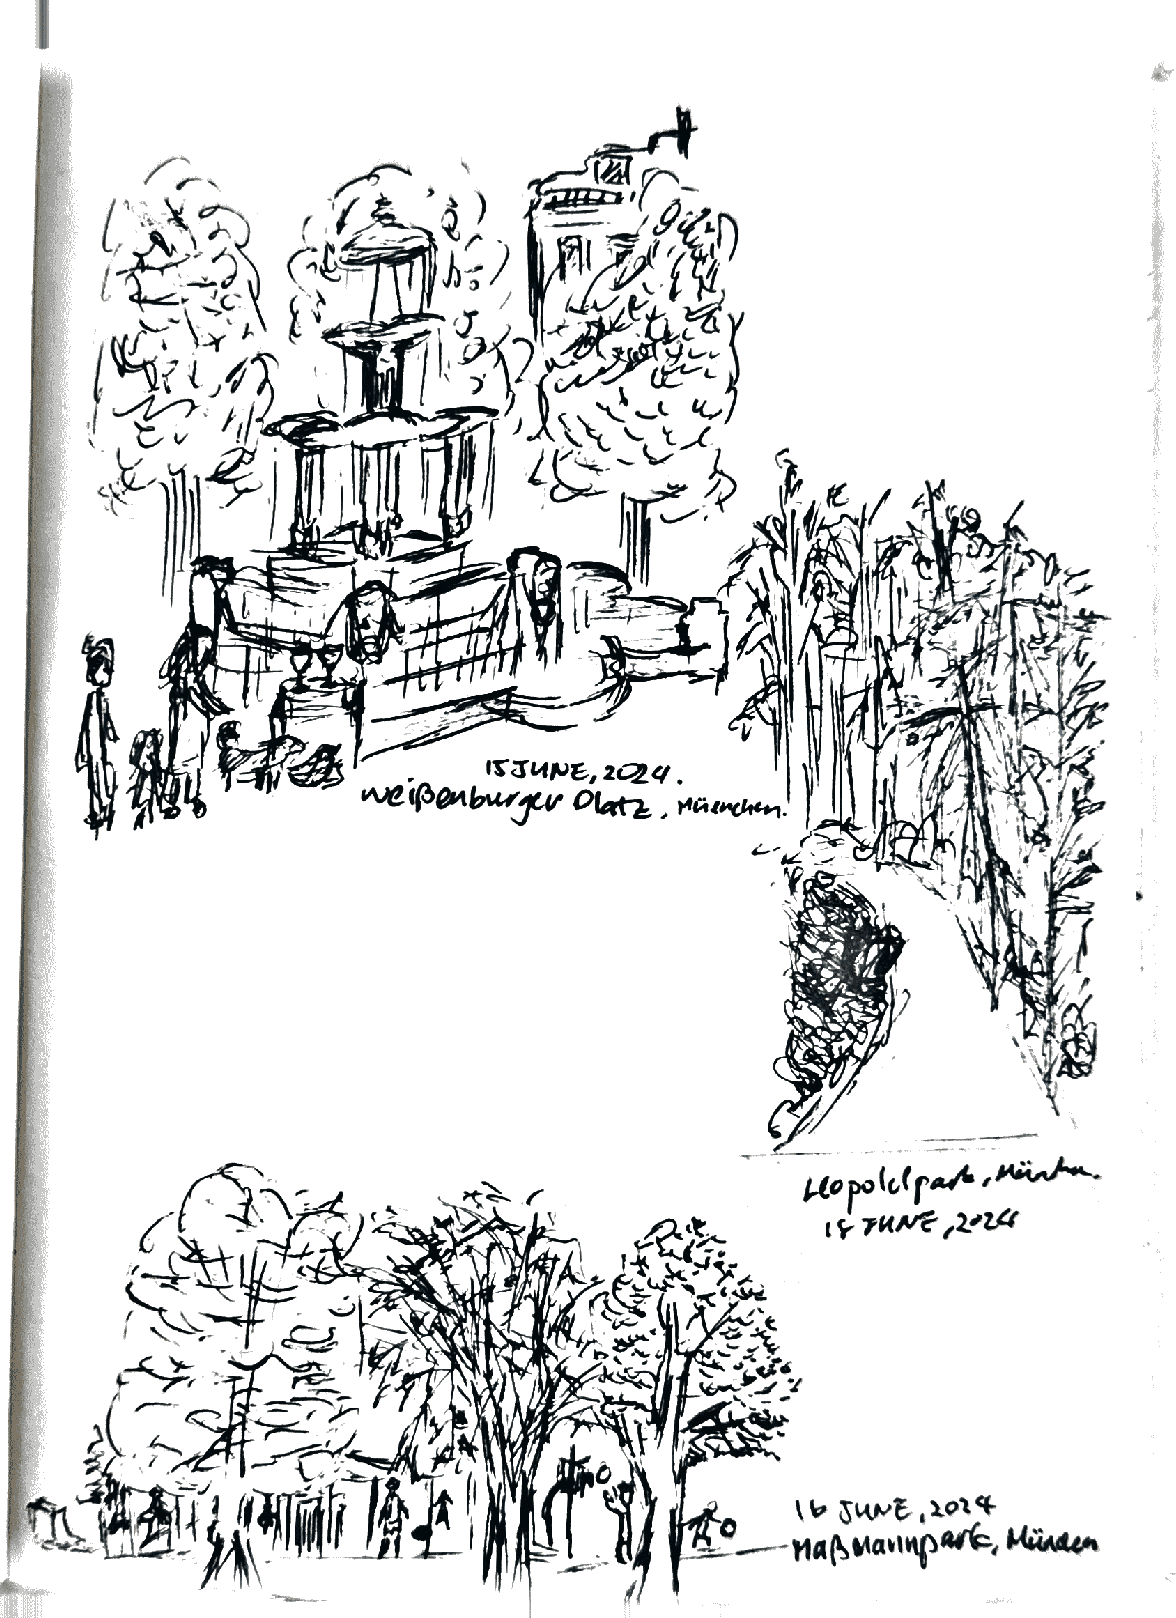 15 JUNE, 2024.
Weißenburger Platz, Müenchen.
Leopoldpark, München.
15 JUNE, 2024
16 JUNE, 2024
Maßmannpark, München